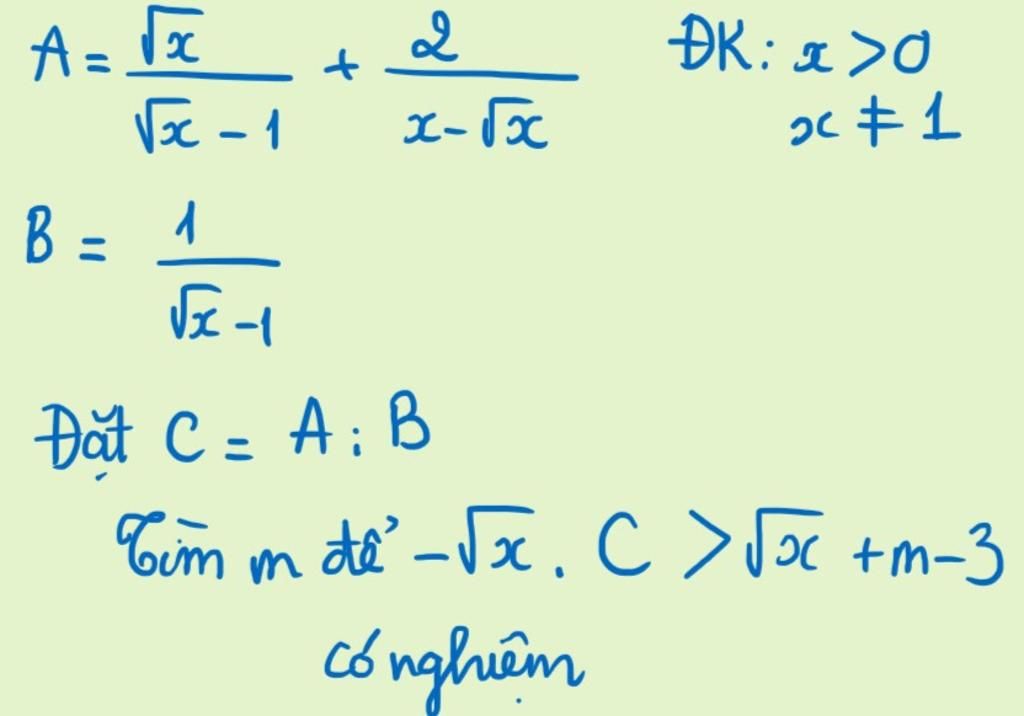 A = √x / (√x - 1) + 2 / (x - √x) ĐK: x > 0
x ≠ 1
B = 1 / (√x - 1)
Đặt C = A : B
Tìm m để -√x . C > √x + m - 3
có nghiệm